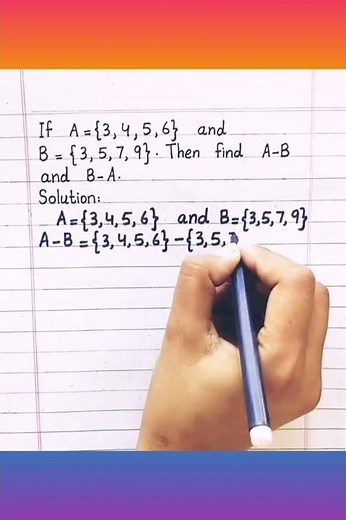 If A={3,4,5,6} and
B={3,5,7,9}. Then find A-B
and B-A.
Solution:
A={3,4,5,6} and B={3,5,7,9}
A-B={3,4,5,6}-{3,5,